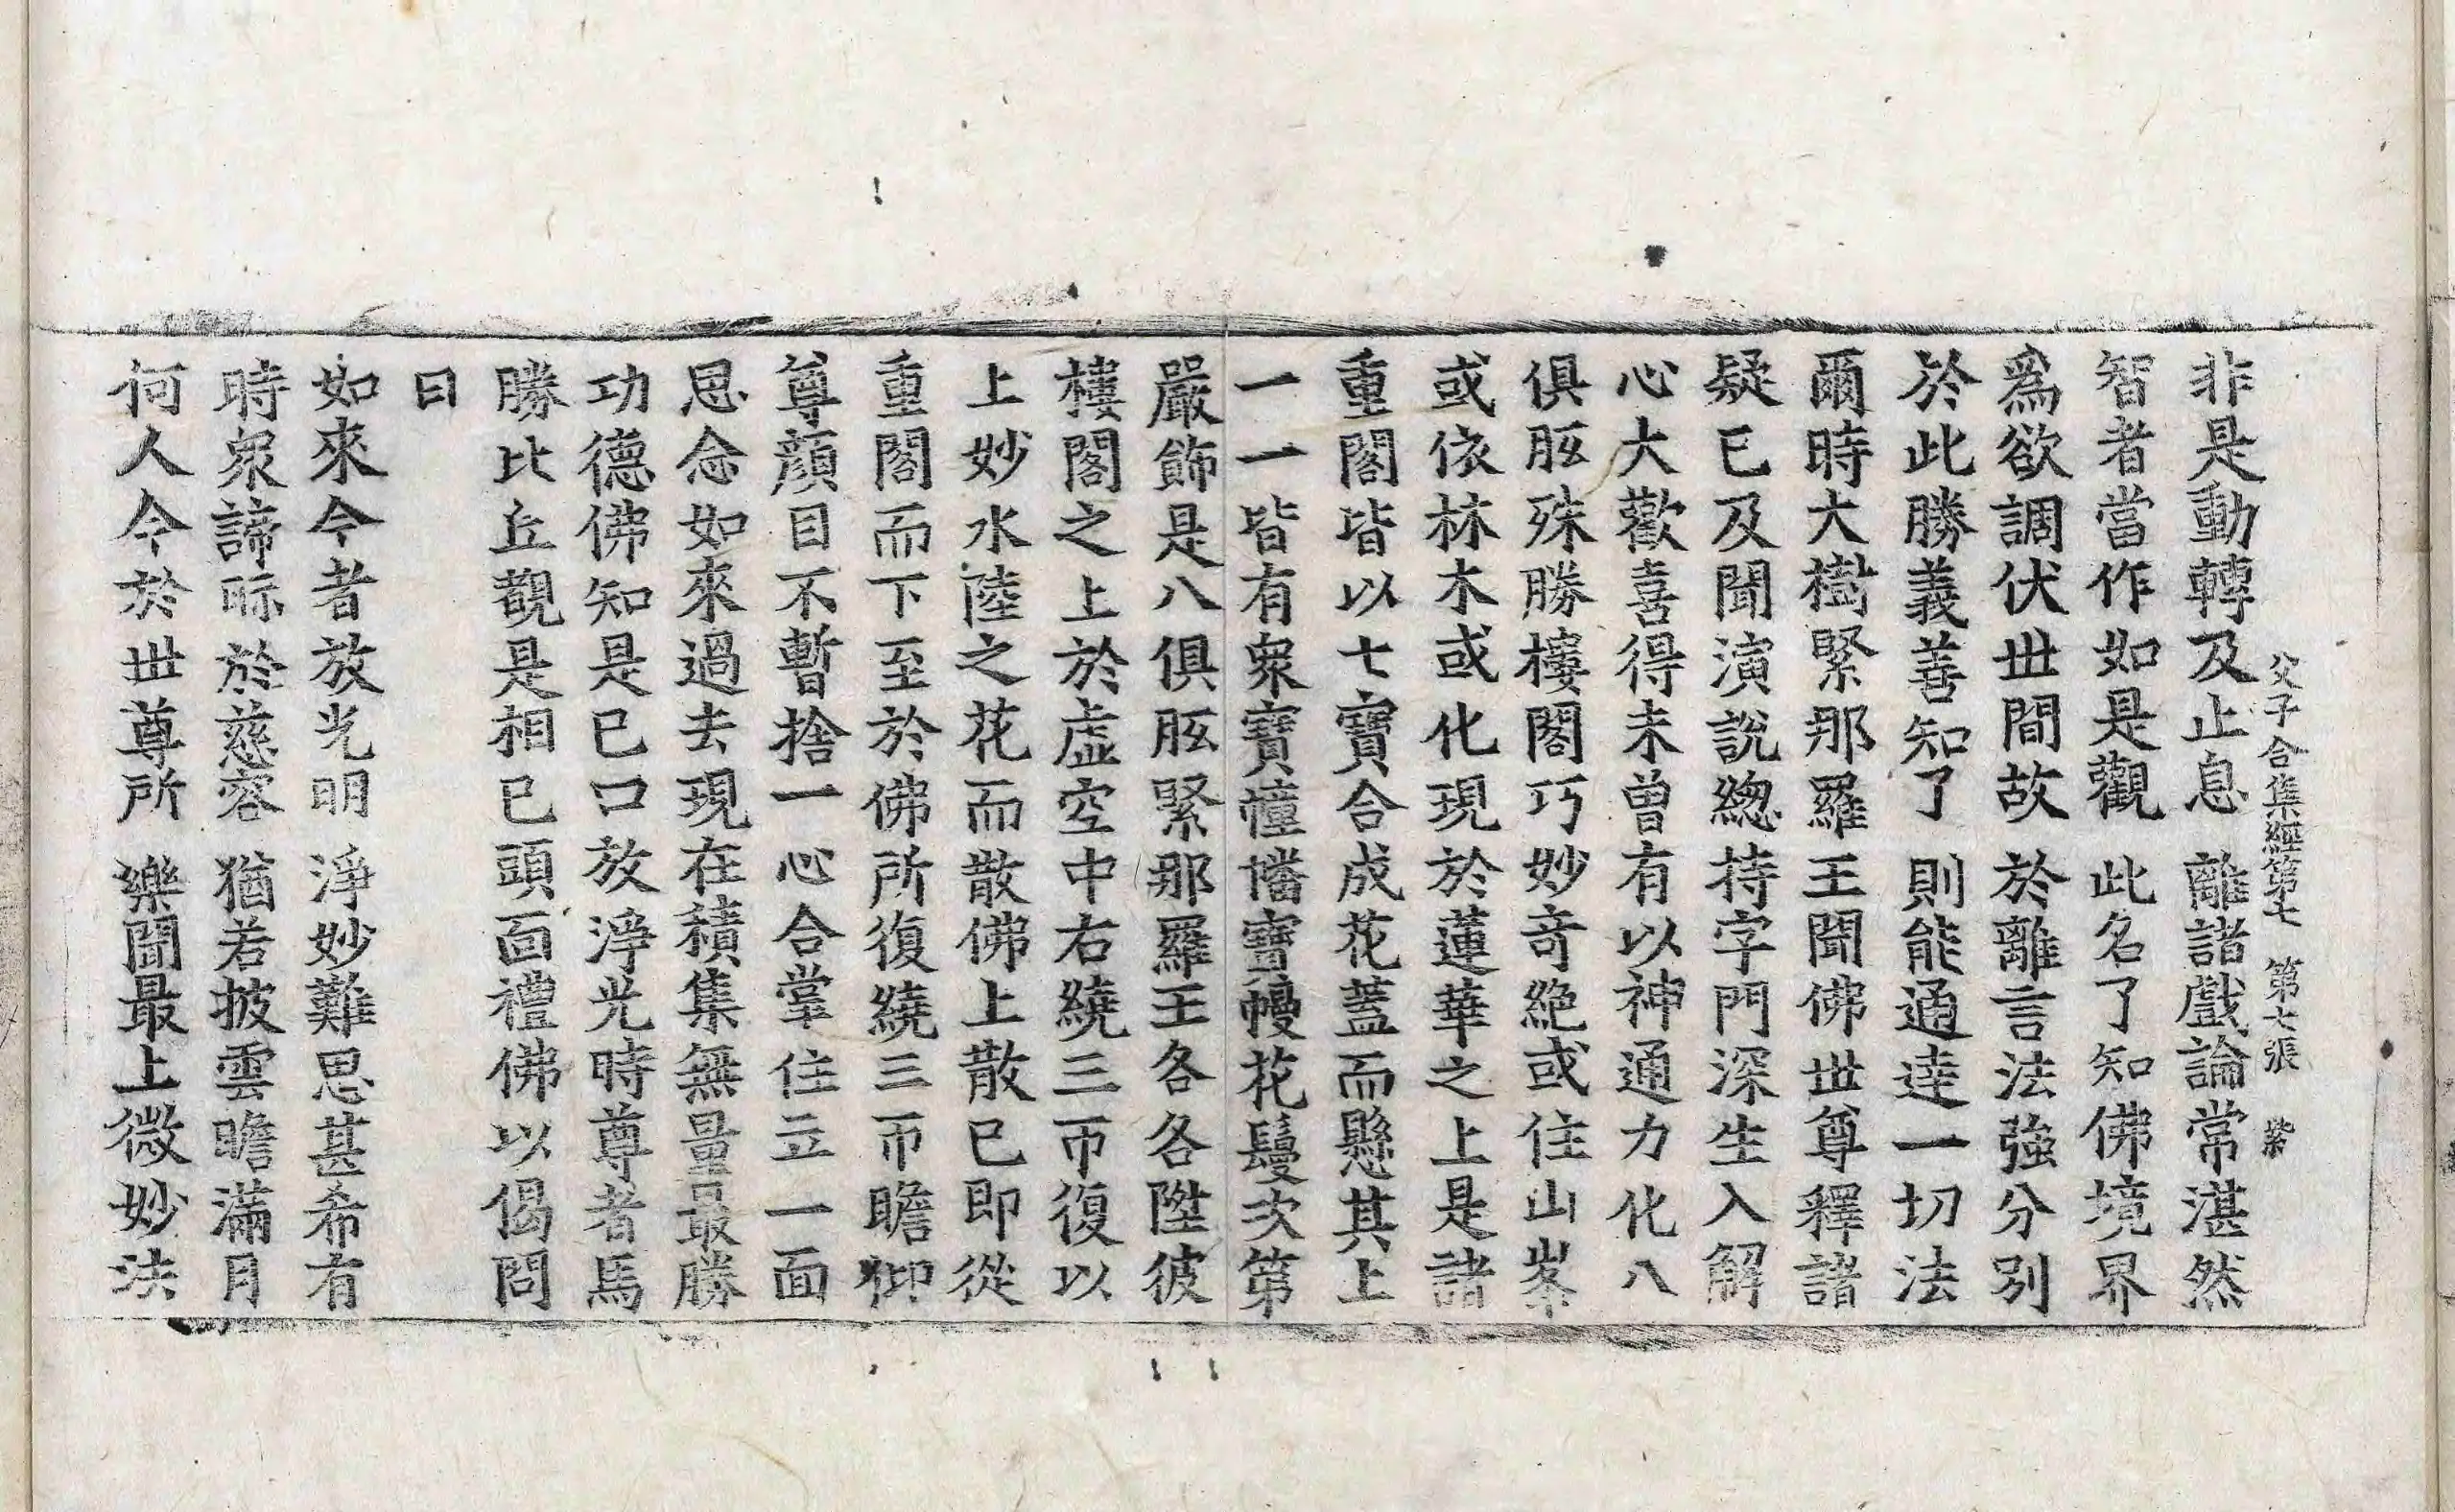 父子合集經第七　第七張　紫
非是動轉及止息　離諸戲論常湛然
智者當作如是觀　此名了知佛境界
爲欲調伏世間故　於離言法強分別
於此勝義善知了　則能通達一切法
爾時大樹緊那羅王聞佛世尊釋諸
疑已及聞演說緫持字門深生入解
心大歡喜得未曾有以神通力化八
俱胝殊勝樓閣巧妙竒絶或住山峯
或依林木或化現於蓮華之上是諸
重閣皆以七寶合成花蓋而懸其上
一一皆有衆寶幢幡寶幔花鬘次第
嚴飾是八俱胝緊那羅王各各陞彼
樓閣之上於虛空中右繞三帀復以
上妙水陸之花而散佛上散已即從
重閣而下至於佛所復繞三帀瞻仰
尊顔目不暫捨一心合掌住立一面
思念如來過去現在積集無量最勝
功德佛知是已口放淨光時尊者馬
勝比丘觀是相已頭面禮佛以偈問
曰
如來今者放光明　淨妙難思甚希有
時衆諦眎於慈容　猶若披雲瞻滿月
何人今於世尊所　樂聞最上微妙法